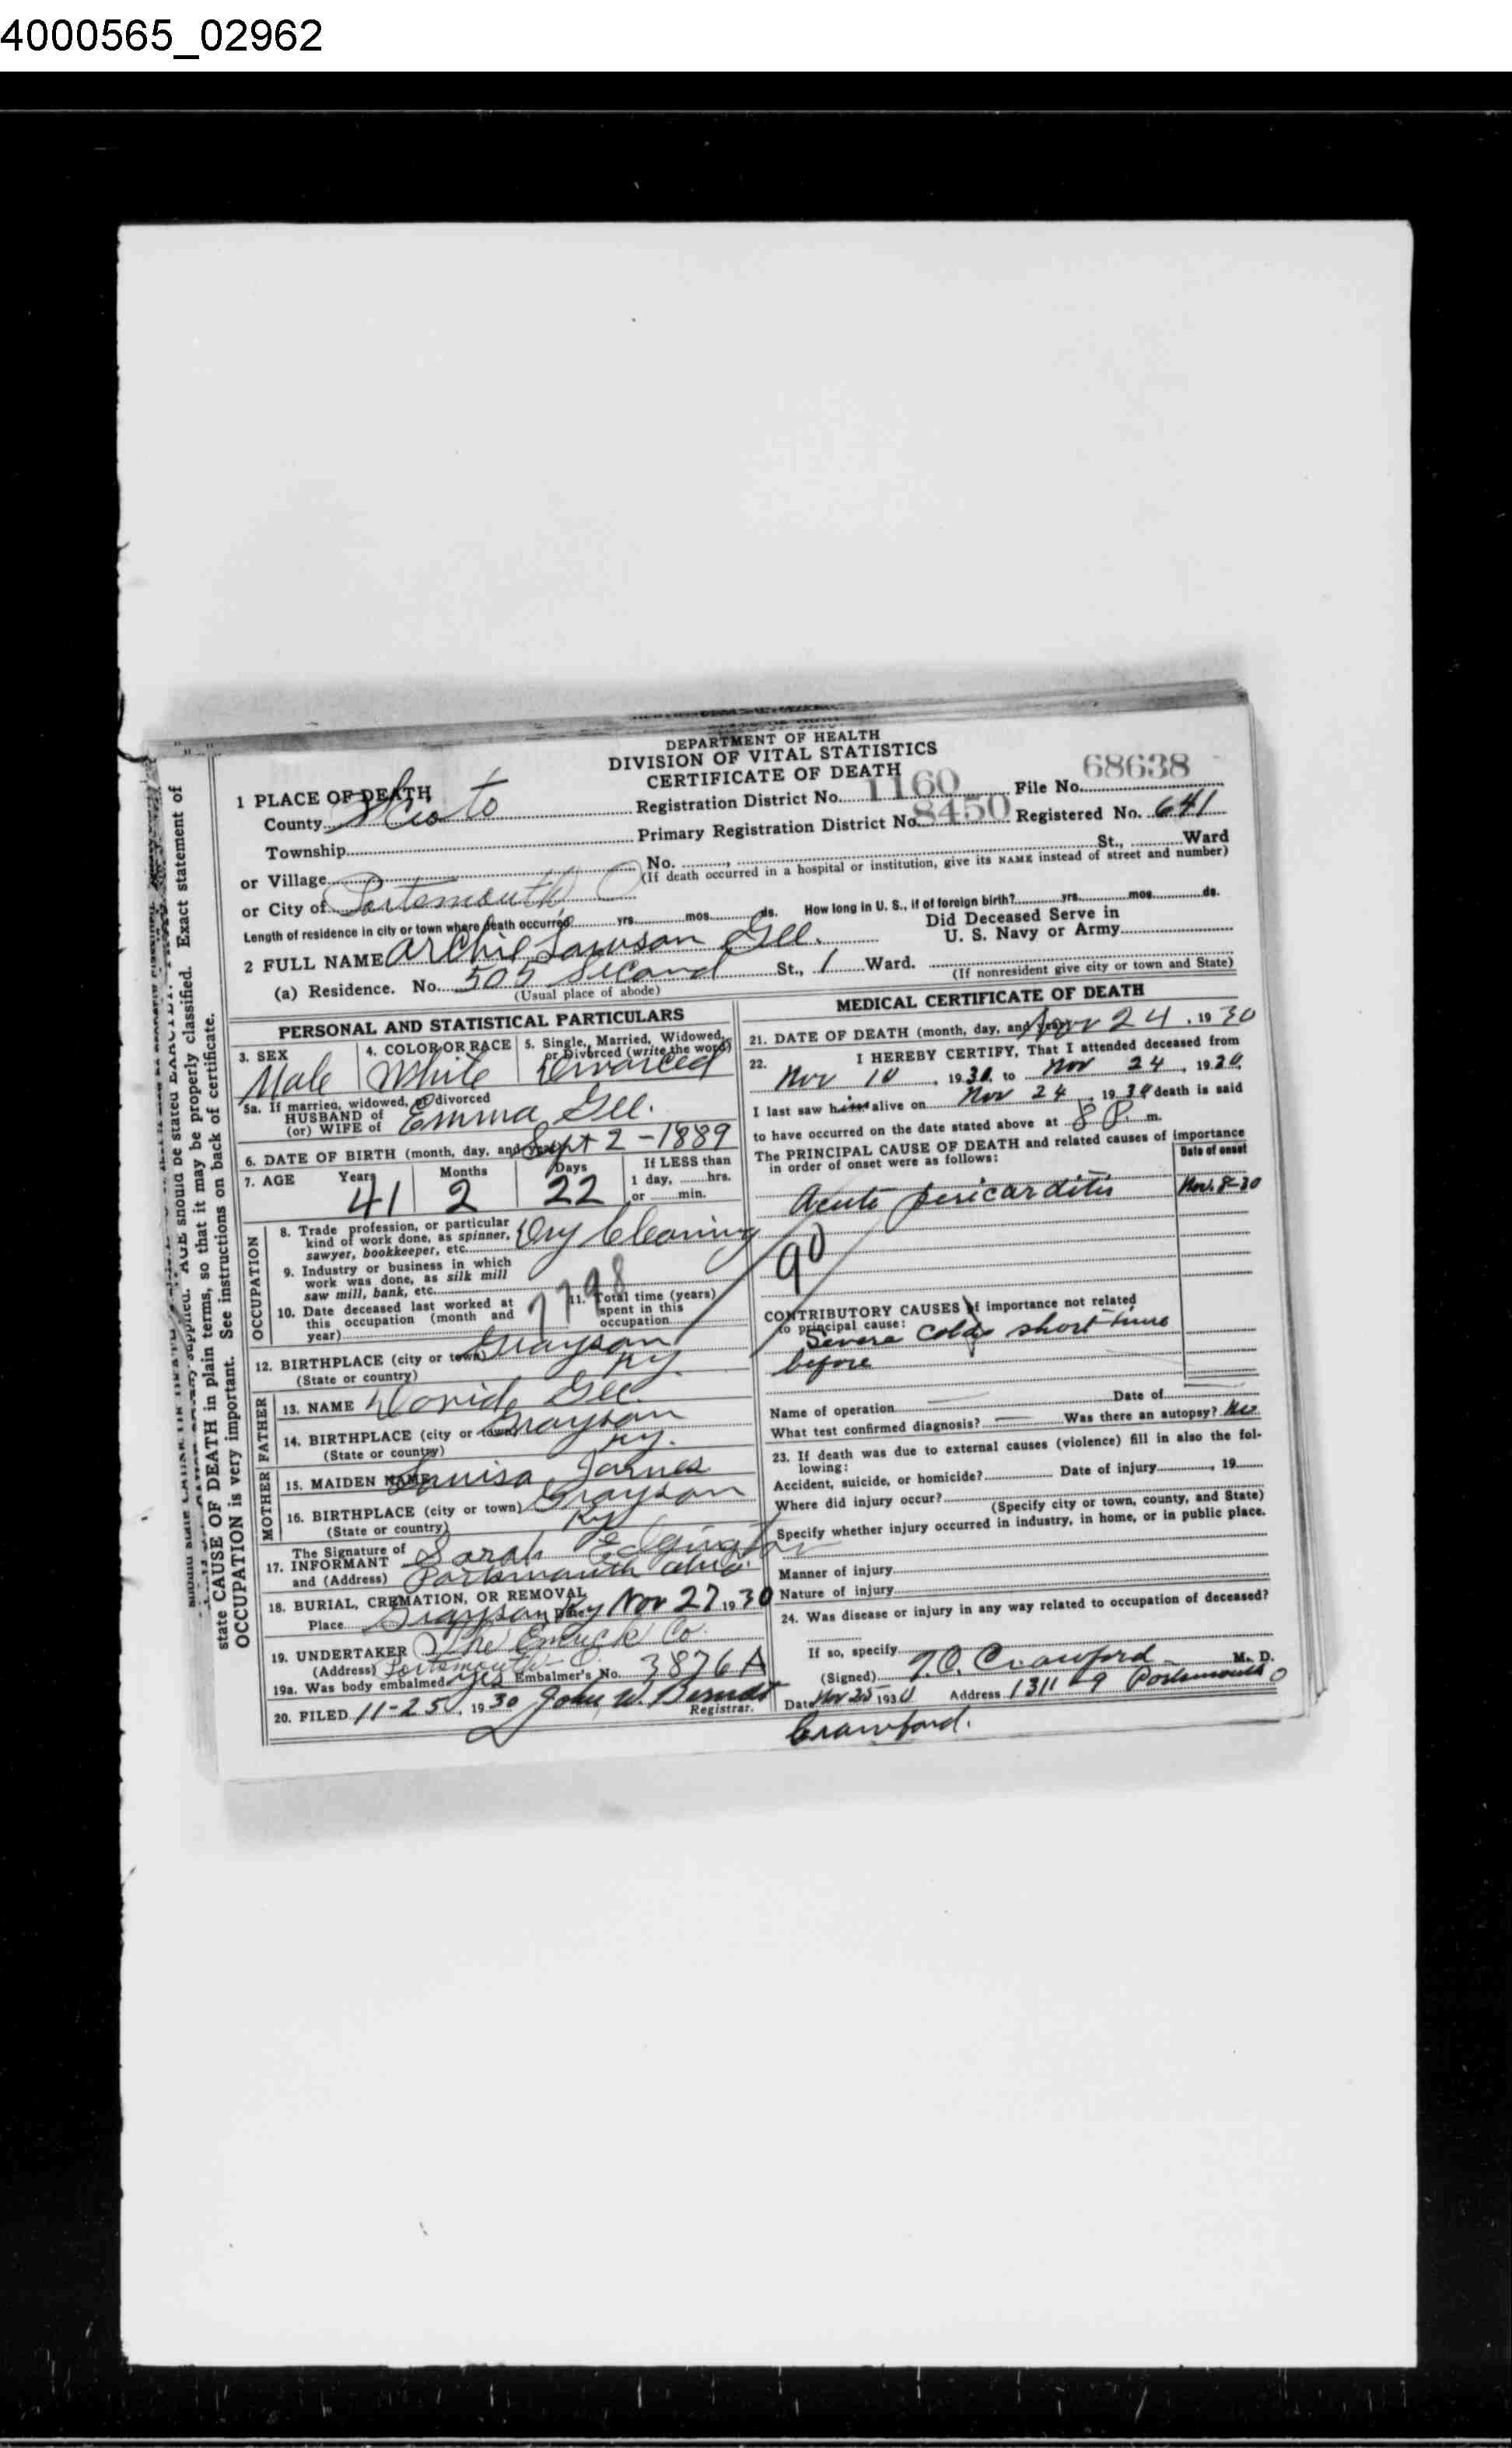 4000565_02962
DEPARTMENT OF HEALTH
DIVISION OF VITAL STATISTICS
CERTIFICATE OF DEATH
1 PLACE OF DEATH
County Scioto Registration District No. 1160 File No. 68638
Township Primary Registration District No. 8450 Registered No. 641
or Village No. , St., Ward
(If death occurred in a hospital or institution, give its NAME instead of street and number)
or City of Portsmouth O
Length of residence in city or town where death occurred yrs. mos. ds. How long in U. S., if of foreign birth? yrs. mos. ds.
Did Deceased Serve in
U. S. Navy or Army
2 FULL NAME Archie Lawson Gee.
(a) Residence. No. 505 Second St., 1 Ward.
(Usual place of abode) (If nonresident give city or town and State)
PERSONAL AND STATISTICAL PARTICULARS
3. SEX 4. COLOR OR RACE 5. Single, Married, Widowed, or Divorced (write the word)
Male White Divorced
5a. If married, widowed, or divorced
HUSBAND of
(or) WIFE of Emma Gee.
6. DATE OF BIRTH (month, day, and year) Sept 2 - 1889
7. AGE Years Months Days If LESS than
1 day, hrs.
or min.
41 2 22
OCCUPATION
8. Trade profession, or particular
kind of work done, as spinner,
sawyer, bookkeeper, etc. Dry Cleaning
9. Industry or business in which
work was done, as silk mill
saw mill, bank, etc.
7798
10. Date deceased last worked at
this occupation (month and
year)
11. Total time (years)
spent in this
occupation
12. BIRTHPLACE (city or town) Grayson
(State or country) Ky.
FATHER
13. NAME David Gee.
14. BIRTHPLACE (city or town) Grayson
(State or country) Ky.
MOTHER
15. MAIDEN NAME Louisa
16. BIRTHPLACE (city or town) Grayson
(State or country) Ky
17. The Signature of
INFORMANT Sarah Edgington
and (Address) Portsmouth Ohio.
18. BURIAL, CREMATION, OR REMOVAL
Place Grayson Ky Date Nov 27 1930
19. UNDERTAKER The Emrick Co.
(Address) Portsmouth - O.
19a. Was body embalmed yes Embalmer's No. 3876 A
20. FILED 11-25, 1930 John W. Berndt
Registrar.
MEDICAL CERTIFICATE OF DEATH
21. DATE OF DEATH (month, day, and year) Nov 24, 1930
22. I HEREBY CERTIFY, That I attended deceased from
Nov 10, 1930, to Nov 24, 1930,
I last saw him alive on Nov 24, 1930 death is said
to have occurred on the date stated above at 8 P. m.
The PRINCIPAL CAUSE OF DEATH and related causes of importance
in order of onset were as follows:
Date of onset
Acute pericarditis Nov. 8-30
90
CONTRIBUTORY CAUSES of importance not related
to principal cause:
Severe colds short time
before
Name of operation Date of
What test confirmed diagnosis? Was there an autopsy? No
23. If death was due to external causes (violence) fill in also the following:
Accident, suicide, or homicide? Date of injury , 19
Where did injury occur?
(Specify city or town, county, and State)
Specify whether injury occurred in industry, in home, or in public place.
Manner of injury
Nature of injury
24. Was disease or injury in any way related to occupation of deceased?
If so, specify
(Signed) T. O. Crawford M. D.
Date Nov 25 1930 Address 1311 Portsmouth O
Crawford.
AGE should be stated EXACTLY. Exact statement of
state CAUSE OF DEATH in plain terms, so that it may be properly classified.
OCCUPATION is very important. See instructions on back of certificate.